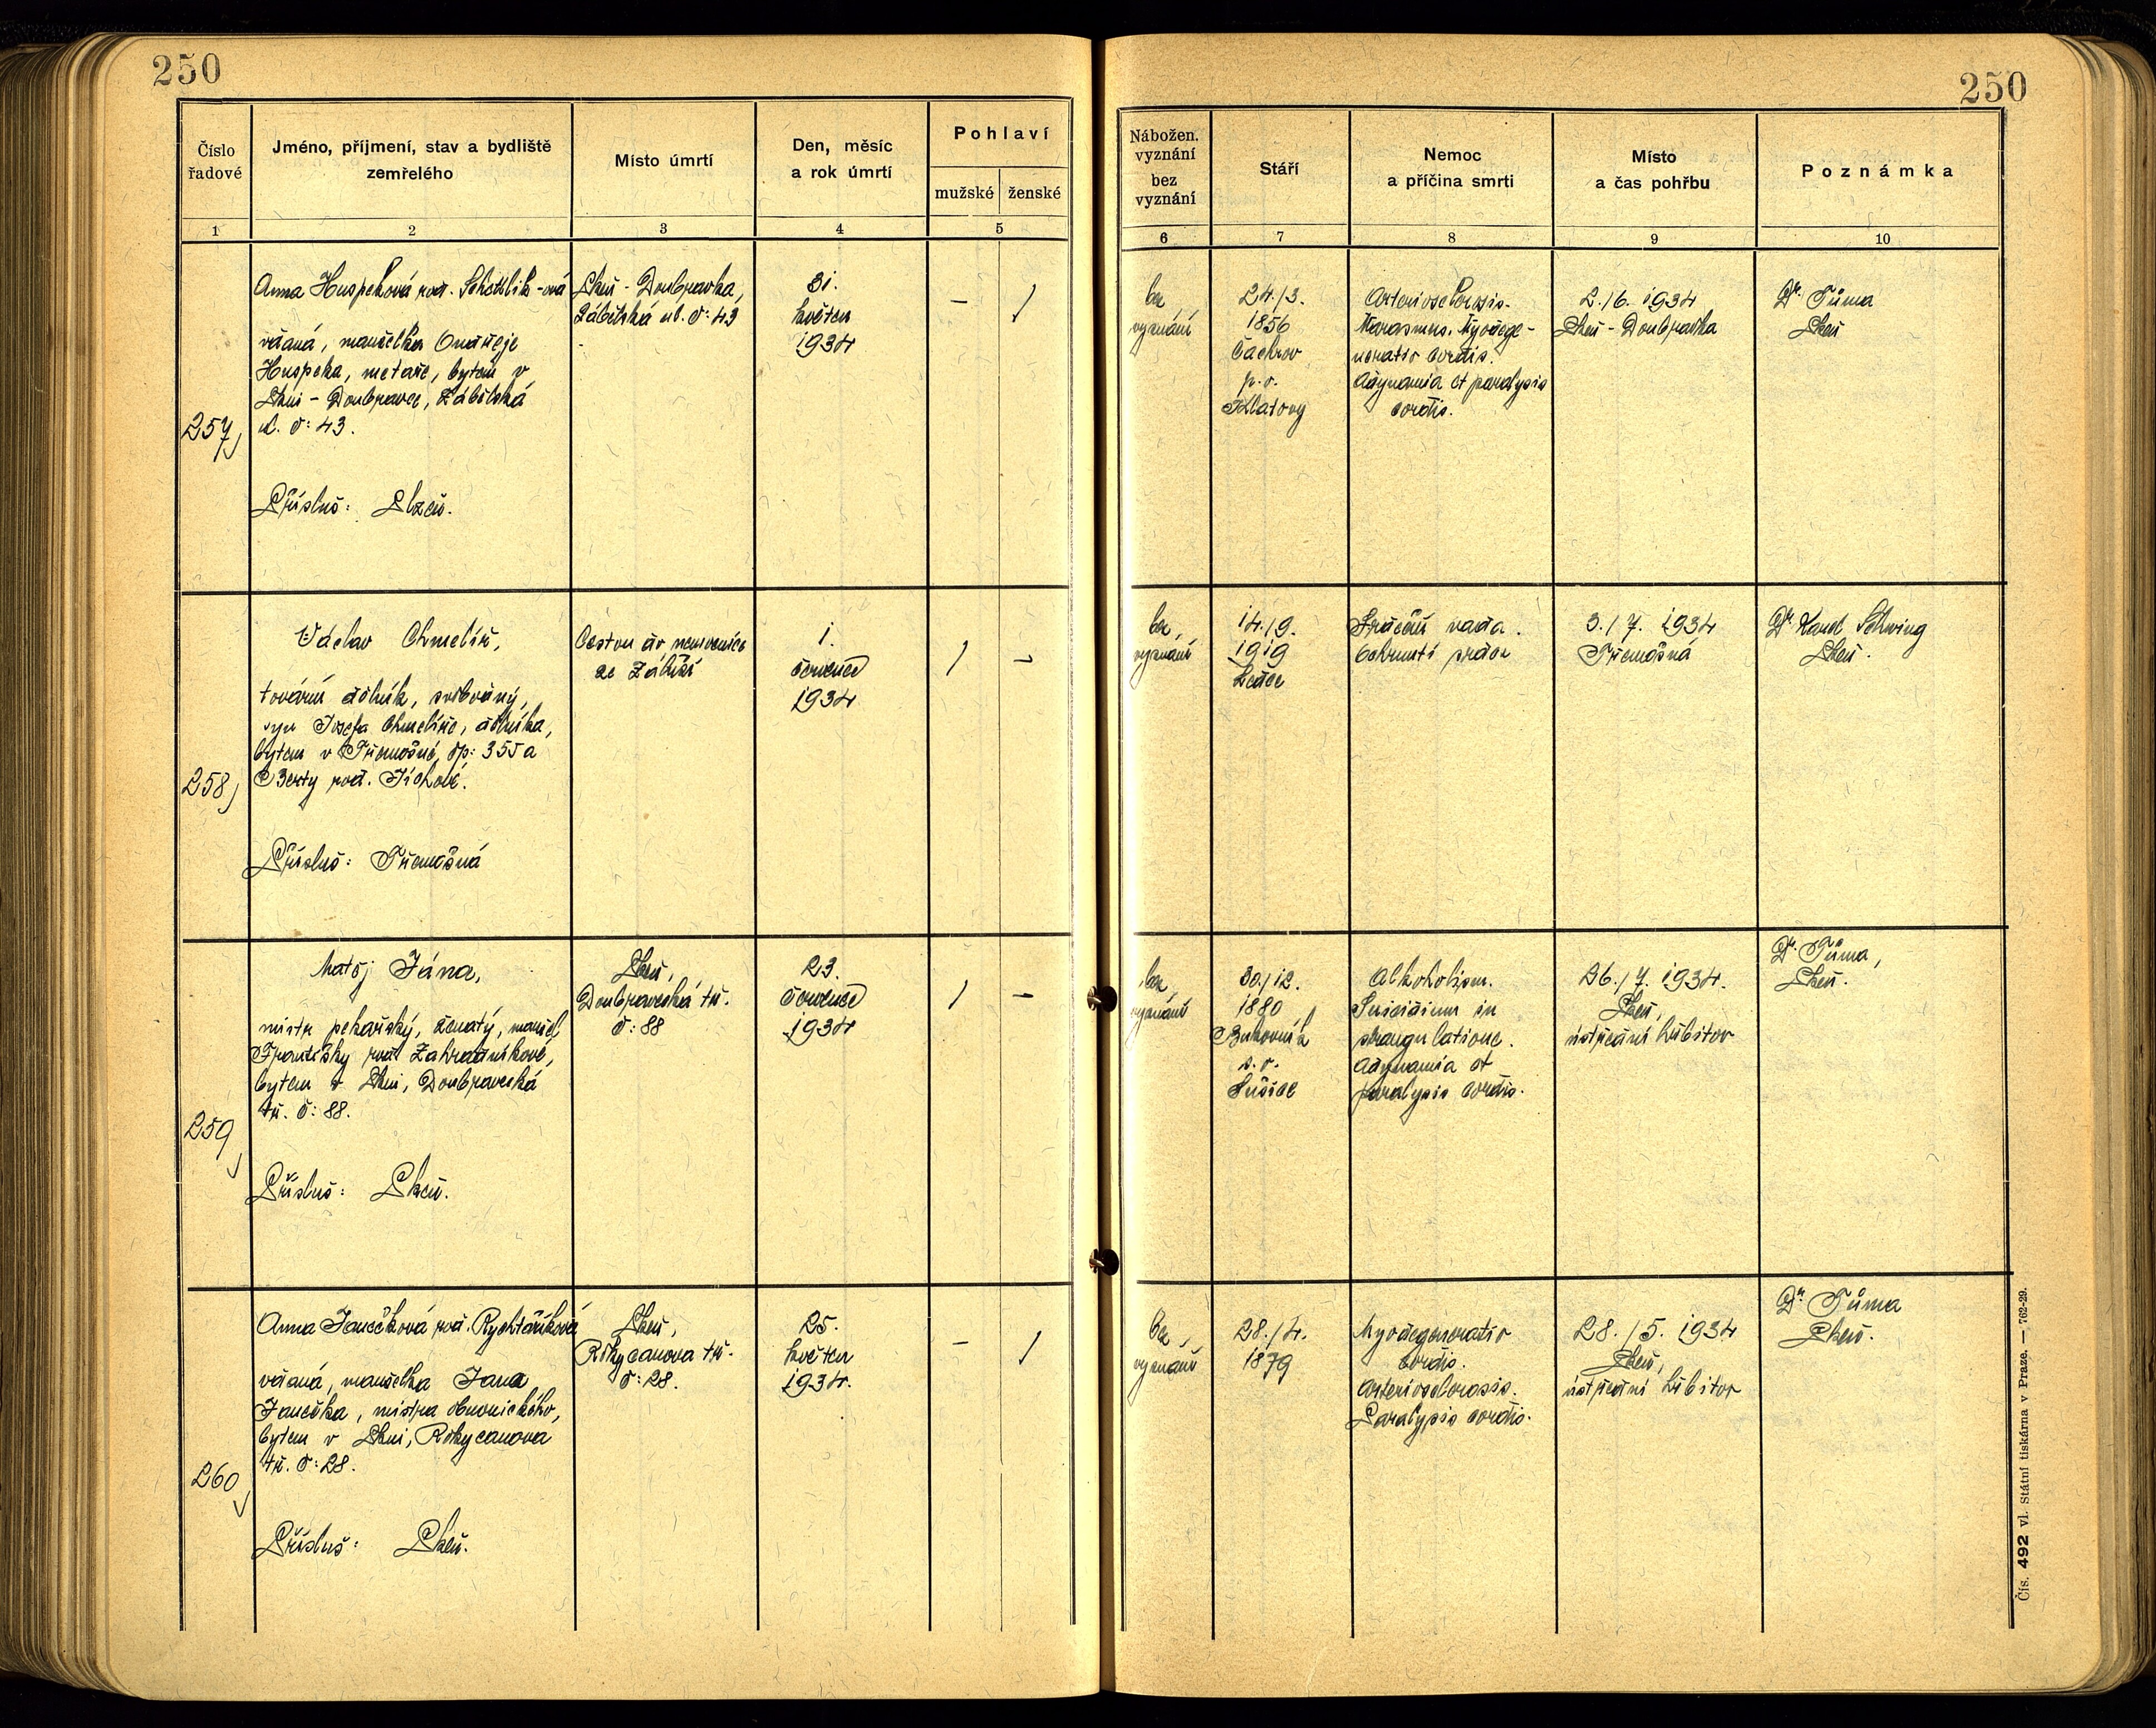 250
250
Číslo
řadové
Jméno, příjmení, stav a bydliště
zemřelého
Místo úmrtí
Den, měsíc
a rok úmrtí
Pohlaví
mužské
ženské
1
2
3
4
5
Nábožen.
vyznání
bez
vyznání
Stáří
Nemoc
a příčina smrti
Místo
a čas pohřbu
Poznámka
6
7
8
9
10
257
Anna Huspeková roz.
vdaná, manželka Ondřeje
Huspeka, metaře, bytem v
Plzni - Doubravce, Zábělská
ul. č: 43.
Přísluš: Plzeň.
Plzeň - Doubravka,
Zábělská ul. č: 43
31.
květen
1934
–
/
bez
vyznání
24./3.
1856
Čachrov
p. o.
Klatovy
Arteriosclerosis.
Marasmus. Myodege-
neratio cordis.
Adynamia et paralysis
cordis.
2./6. 1934
Plzeň - Doubravka
Dr. Tůma
Plzeň
258
Václav Chmelíř,
tovární dělník, svobodný,
syn Josefa Chmelíře, dělníka,
bytem v Třemošné, čp: 355 a
Berty roz. Tiché.
Přísluš: Třemošná
Cestou do nemocnice
ze Záluží
1.
červenec
1934
/
–
bez
vyznání
14./9.
1919
Ledce
Srdeční vada.
Ochrnutí srdce
3./7. 1934
Třemošná
Dr. Karel Schwing
Plzeň.
259
Matěj Jána,
mistr pekařský, ženatý, manžel
Františky roz. Zahradníkové,
bytem v Plzni, Doubravecká
tř. č: 88.
Přísluš: Plzeň.
Plzeň,
Doubravecká tř.
č: 88
23.
červenec
1934
/
–
bez
vyznání
30./12.
1880
Bukovník
s. o.
Sušice
Alkoholism.
Suicidium in
strangulatione.
Adynamia et
paralysis cordis.
26./7. 1934.
Plzeň,
ústřední hřbitov
Dr. Tůma,
Plzeň.
260
Anna Janečková roz. Rychtaříková
vdaná, manželka Jana
Janečka, mistra
bytem v Plzni, Rokycanova
tř. č: 28.
Přísluš: Plzeň.
Plzeň,
Rokycanova tř.
č: 28.
25.
květen
1934.
–
/
bez
vyznání
28./4.
1879
Myodegeneratio
cordis.
Arteriosclerosis.
Paralysis cordis.
28./5. 1934
Plzeň,
ústřední hřbitov
Dr. Tůma
Plzeň.
Čís. 492 vl. Státní tiskárna v Praze. — 762-29.